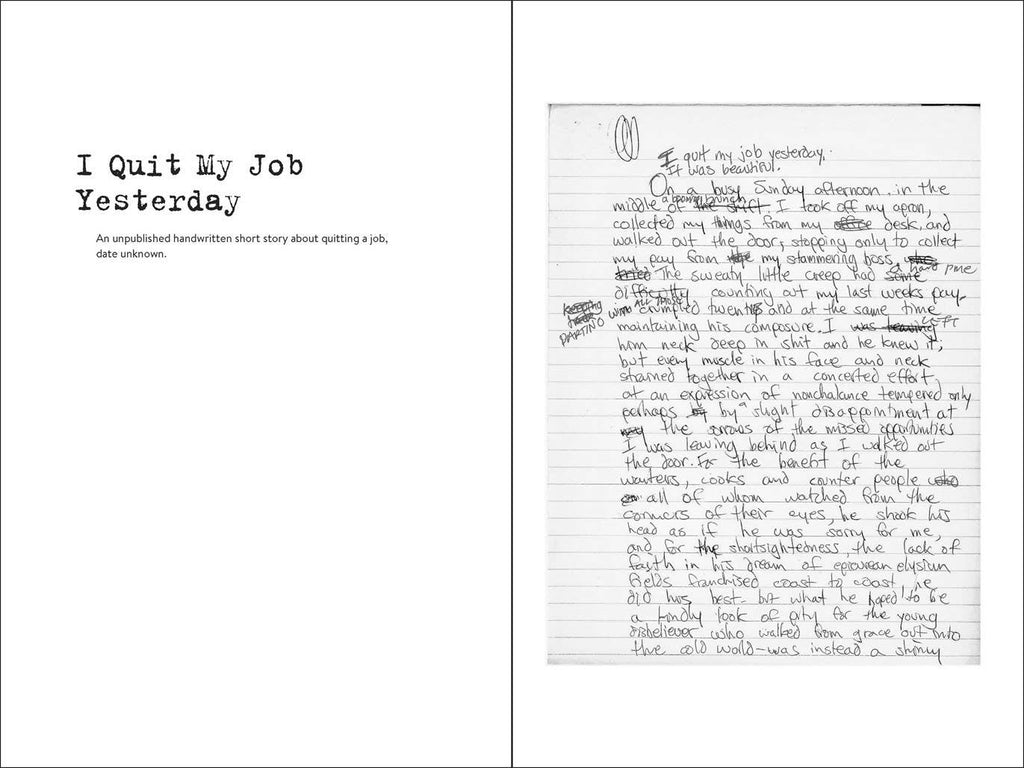 I Quit My Job
Yesterday
An unpublished handwritten short story about quitting a job,
date unknown.
I quit my job yesterday.
It was beautiful.
On a busy Sunday afternoon, in the
a booming brunch
middle of the shift. I took off my apron,
collected my things from my office desk, and
walked out the door, stopping only to collect
my pay from the my stammering boss, who
tried The sweaty little creep had some a hard time
difficulty counting out my last weeks pay
keeping
PARTING WITH ALL THOSE crumpled twenties and at the same time
maintaining his composure. I was leaving LEFT
him neck deep in shit and he knew it;
but every muscle in his face and neck
strained together in a concerted effort
at an expression of nonchalance tempered only
perhaps by a slight disappointment at
the sorrows of the missed opportunities
I was leaving behind as I walked out
the door. For the benefit of the
waiters, cooks and counter people who
all of whom watched from the
corners of their eyes, he shook his
head as if he was sorry for me,
and for the shortsightedness, the lack of
faith in his dream of epicurean elysium
fields franchised coast to coast, he
did his best - but what he hoped to be
a kindly look of pity for the young
disbeliever who walked from grace out into
the cold world - was instead a shiny